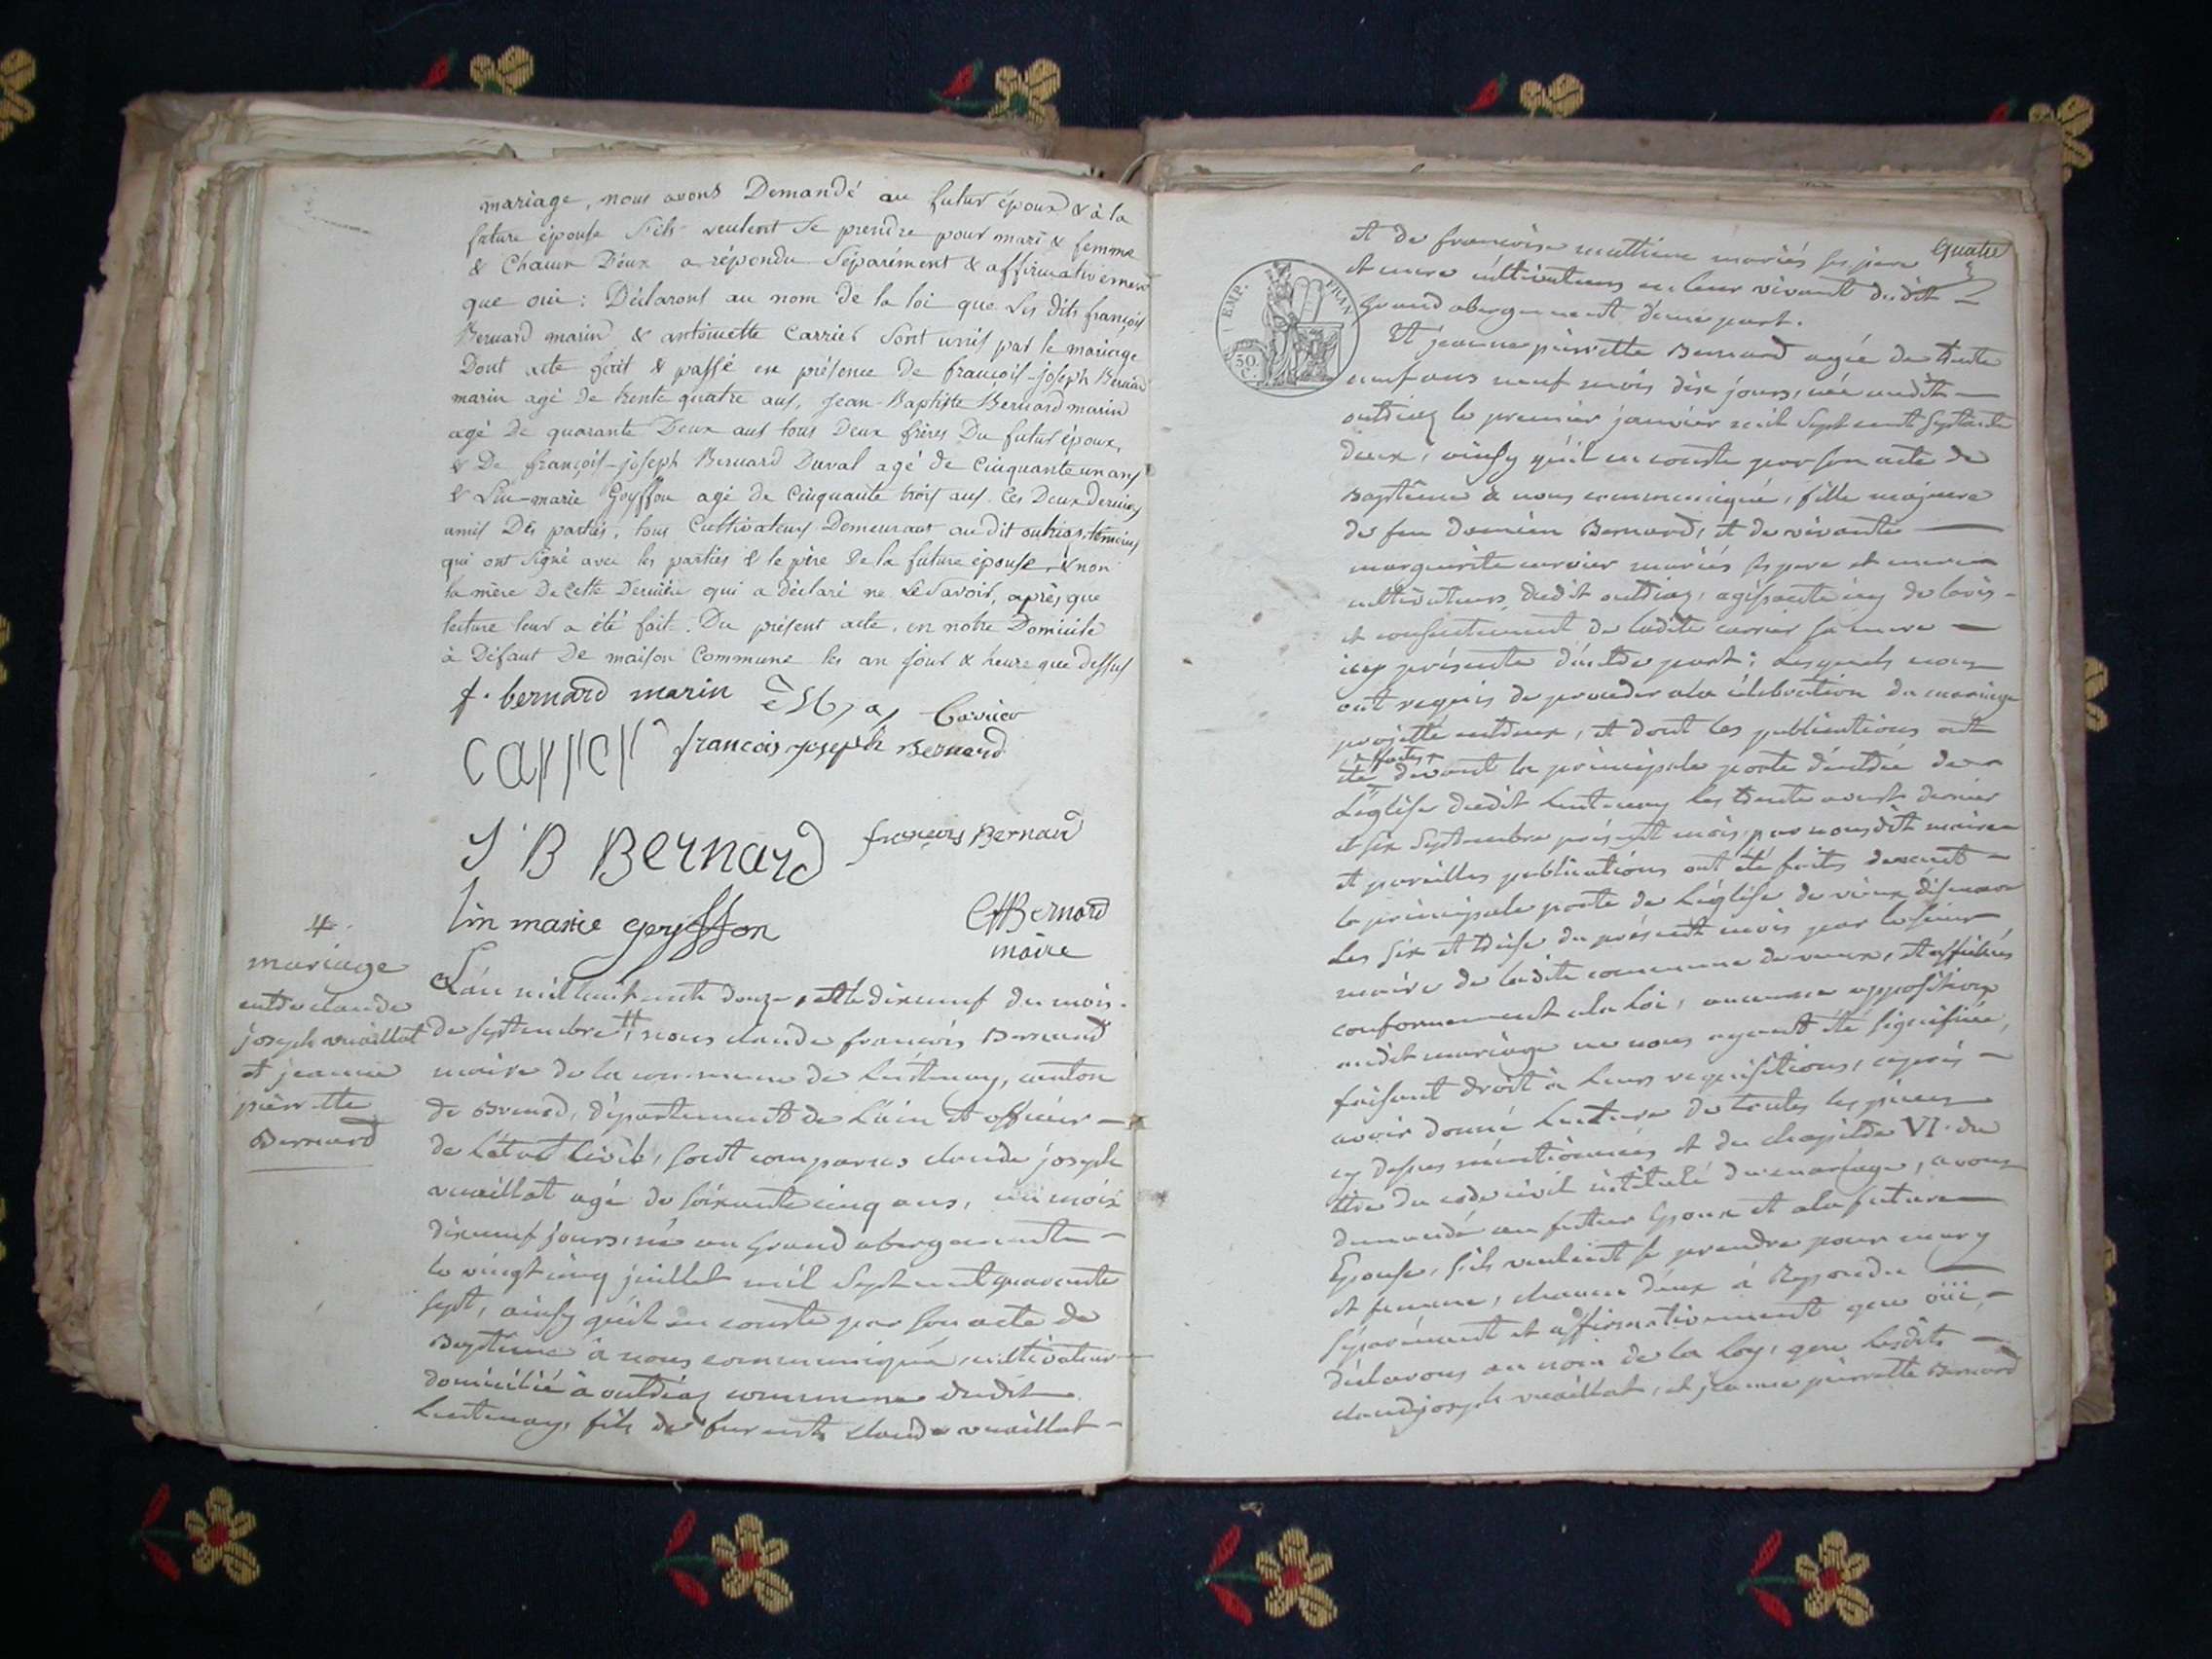 mariage, nous avons Demandé au futur époux & à la
future épouse S'ils veulent se prendre pour mari & femme
& Chacun D'eux a répondu Séparément & affirmativement
que oui : Déclarons au nom de la loi que les dits françois
Bernard marin & antoinette Carrier sont unis par le mariage
Dont acte fait & passé en présence de françois-joseph Bernard
marin agé de trente quatre ans, Jean-Baptiste Bernard marin
agé de quarante Deux ans tous Deux frères Du futur époux,
& De françois-joseph Bernard Duval agé de Cinquante un ans
& Lin-marie Goyffon agé de Cinquante trois ans Ces Deux derniers
amis Des parties, tous Cultivateurs Demeurant audit outriaz, témoins
qui ont signé avec les parties & le père De la future épouse, & non
la mère De Cette Dernière qui a déclaré ne le Savoir, après que
lecture leur a été fait Du présent acte, en notre Domicile
à Défaut De maison Commune les an jour & heure que dessus
f. bernard marin Carrier
carrier francois joseph Bernard
J B Bernard françois Bernard
lin marie goyffon CfBernard
maire
4.
mariage
entre claude
joseph vuaillat
et jeanne
pierrette
Bernard
L'an mil huit cent douze, et le dixneuf du mois
de septembre, nous claude françois Bernard
maire de la commune de Lantenay, canton
de Brenod, département de l'ain et officier
de l'état civil, sont comparus claude joseph
vuaillat agé de soixante cinq ans, un mois
dixneuf jours, né au grand abergement
le vingt cinq juillet mil sept cent quarante
sept, ainsy qu'il en conste par son acte de
Baptême à nous communiqué, cultivateur
domicilié à outriaz commune dudit
Lantenay, fils de claude vuaillat
quatre
et de françoise mariés ses père
et mere cultivateurs en leur vivant dudit
grand abergement d'une part.
EMP. FRAN
50
C.
Et jeanne pierrette Bernard agée de trente
neuf ans neuf mois dix jours, née audit
outriaz le premier janvier mil sept cent septante
deux, ainsy qu'il en conste par son acte de
Baptême à nous communiqué, fille majeure
de feu Bernard, et de vivante
marguerite carrier mariés ses pere et mere
cultivateurs dudit outriaz, agissante icy de l'avis
et consentement de ladite carrier sa mere
icy présente d'autre part ; Lesquels nous
ont requis de proceder a la célébration du mariage
projetté entreux, et dont les publications ont
été faites devant la principale porte d'entrée de
L'église dudit Lantenay les trente aoust dernier
et six septembre présent mois par nousdit maire
et pareilles publications ont été faites devant
la principale porte de l'église de vieux
Les six et treize du présent mois par le sieur
maire de ladite commune de vieux, et affichées
conformement a la loi, aucune opposition
audit mariage ne nous ayant été signifiée,
faisant droit à leurs requisitions, après
avoir donné lecture de toutes les pieces
cy dessus mentionnées et du chapitre VI du
titre du code civil intitulé du mariage, avons
demandé au futur Epoux et a la future
Epouse, s'ils veulent se prendre pour mary
et femme, chacun d'eux à Repondu
séparément et affirmativement que oüi,
déclarons au nom de la loy, que lesdits
claude joseph vuaillat, et jeanne pierrette Bernard